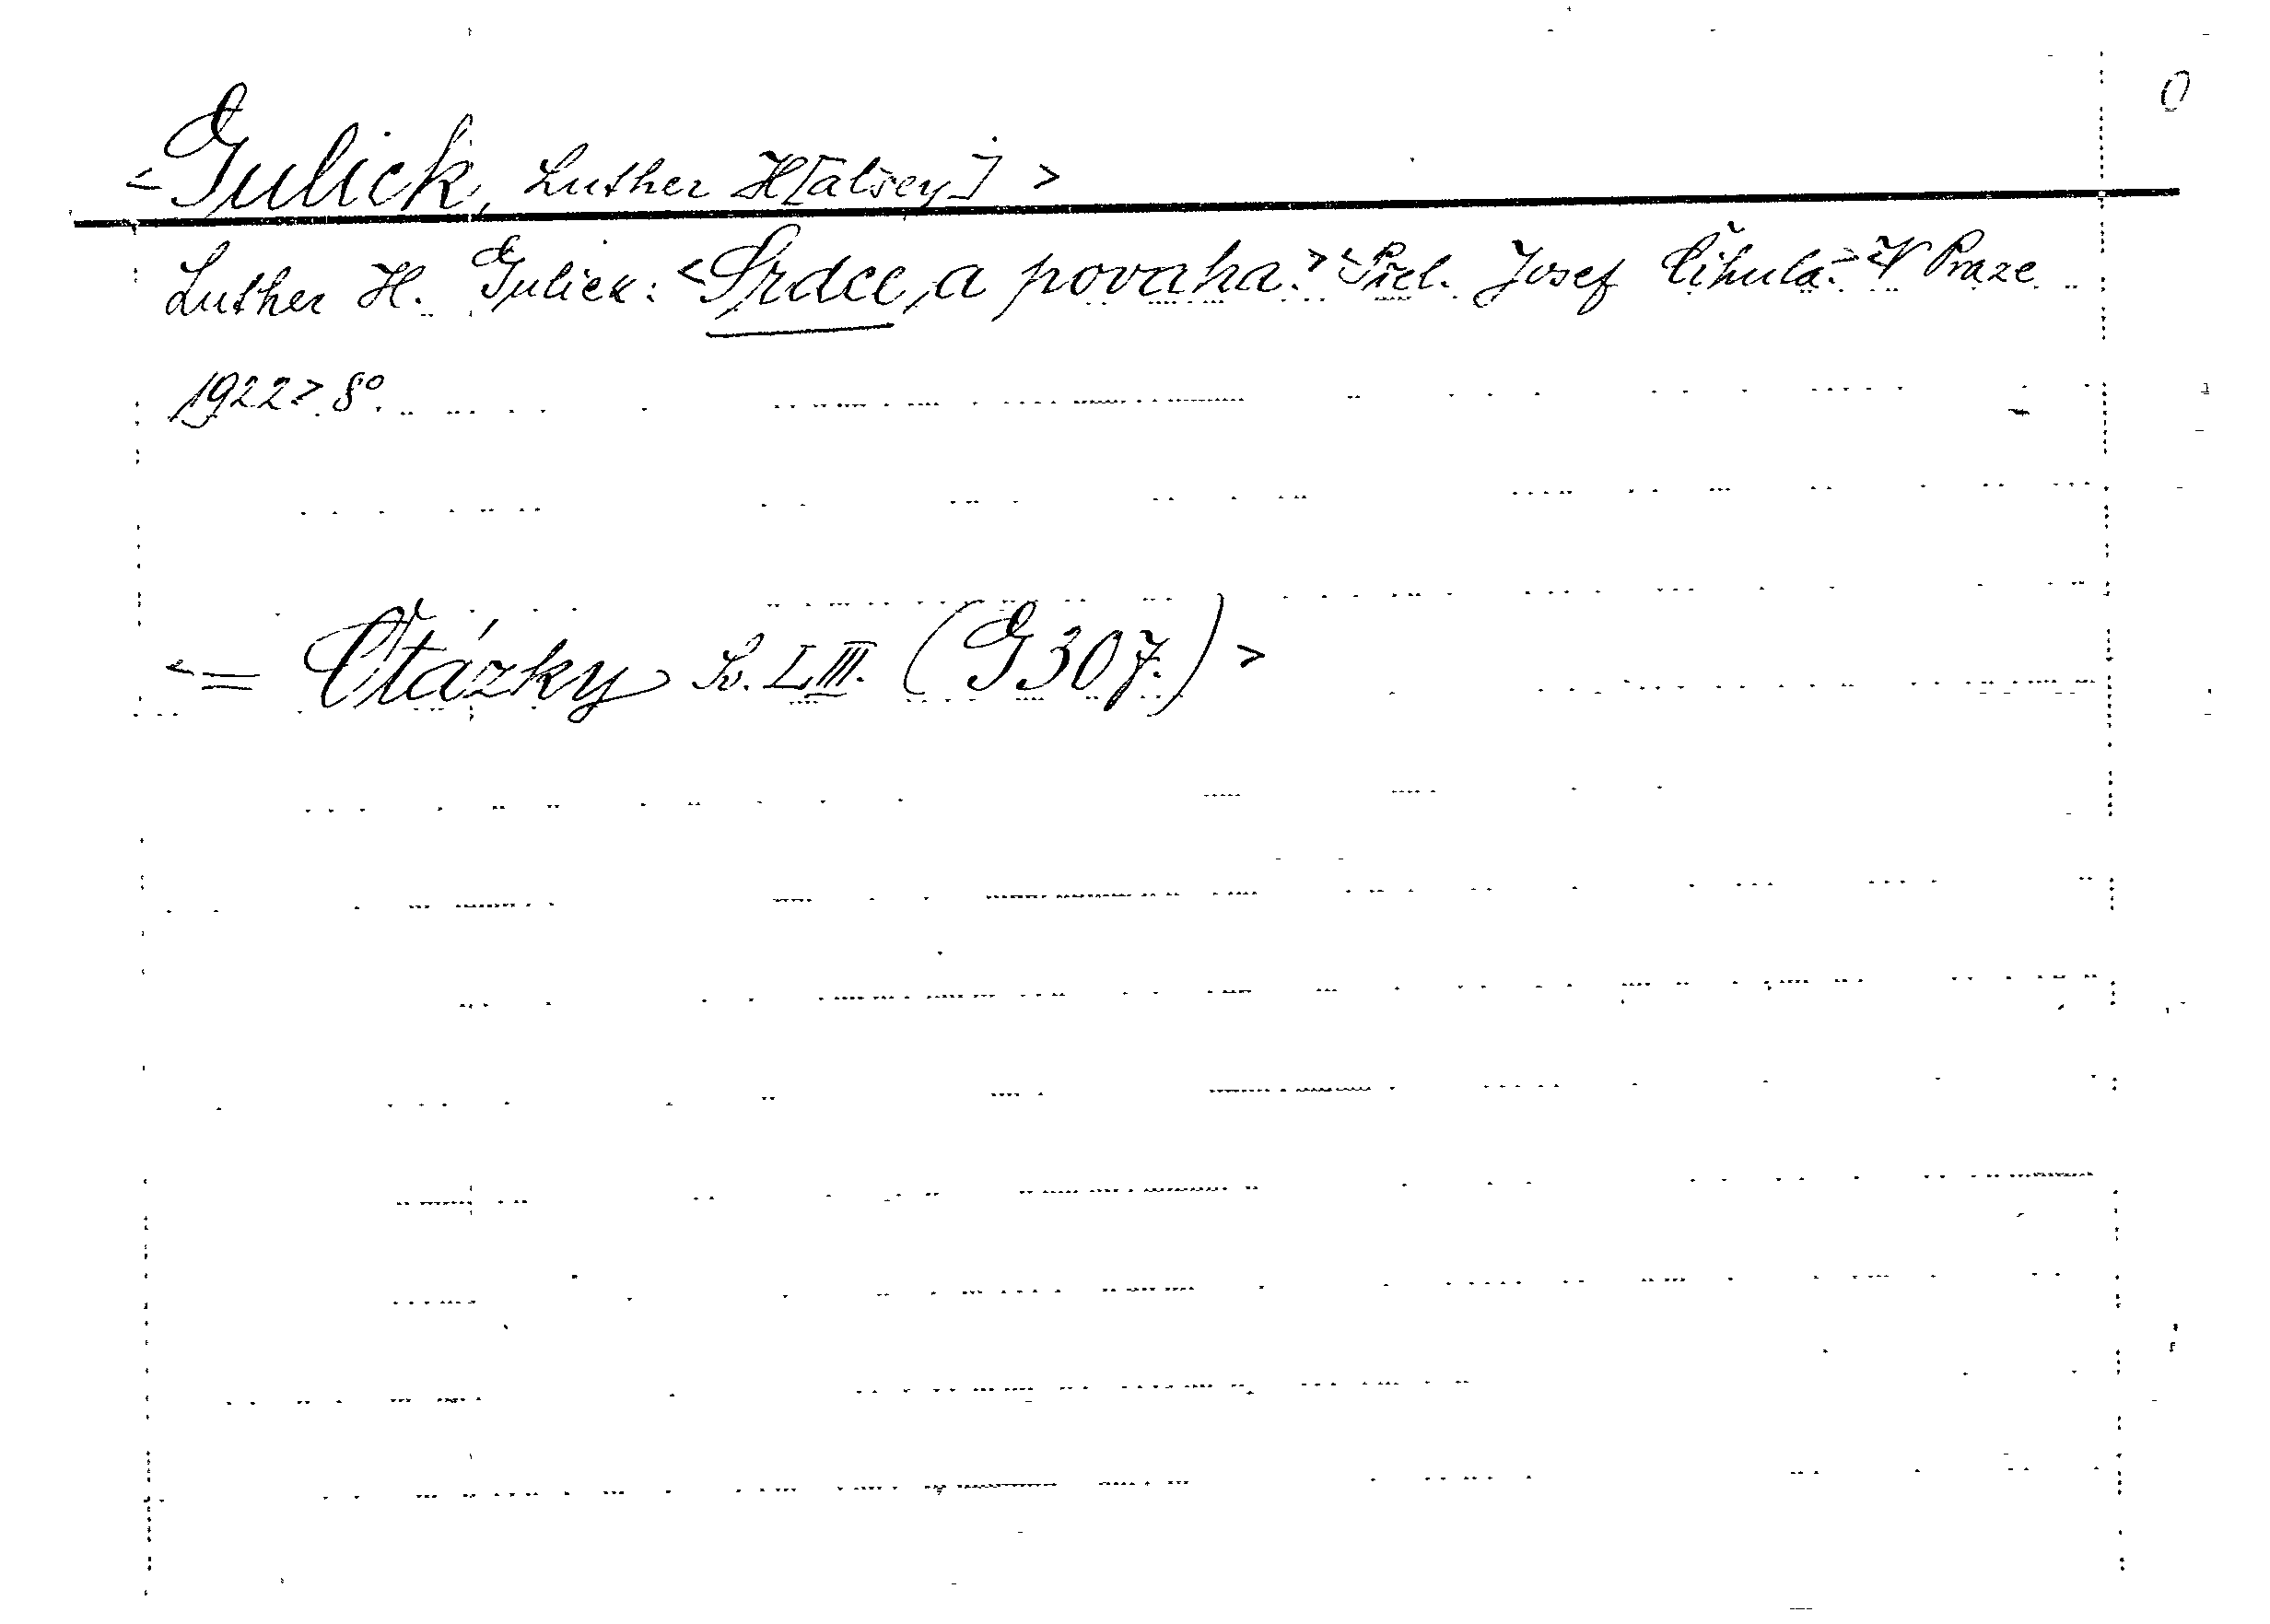 0
<Gulick, Luther H[alsey] >
Luther H. Gulick: <Srdce, a povaha.> <Přel. Josef Číhula.> <V Praze
1922> 8°.
<= Otázky Sv. LIII. (G307.) >